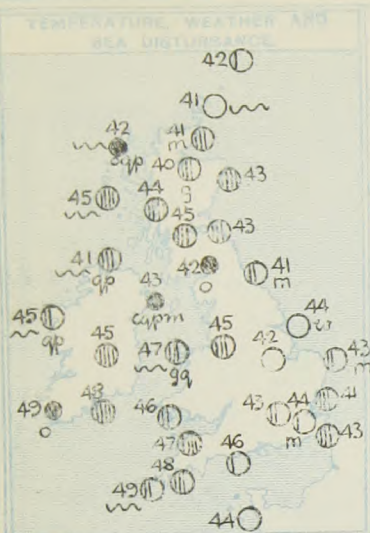 TEMPERATURE, WEATHER AND
SEA DISTURBANCE
42
41
42
41
m
cqp
40
43
g
45
44
45
43
41
qp
42
o
41
m
43
cqpm
45
qp
44
45
47
gq
45
42
43
m
49
o
48
46
43
44
m
41
43
47
46
48
49
44